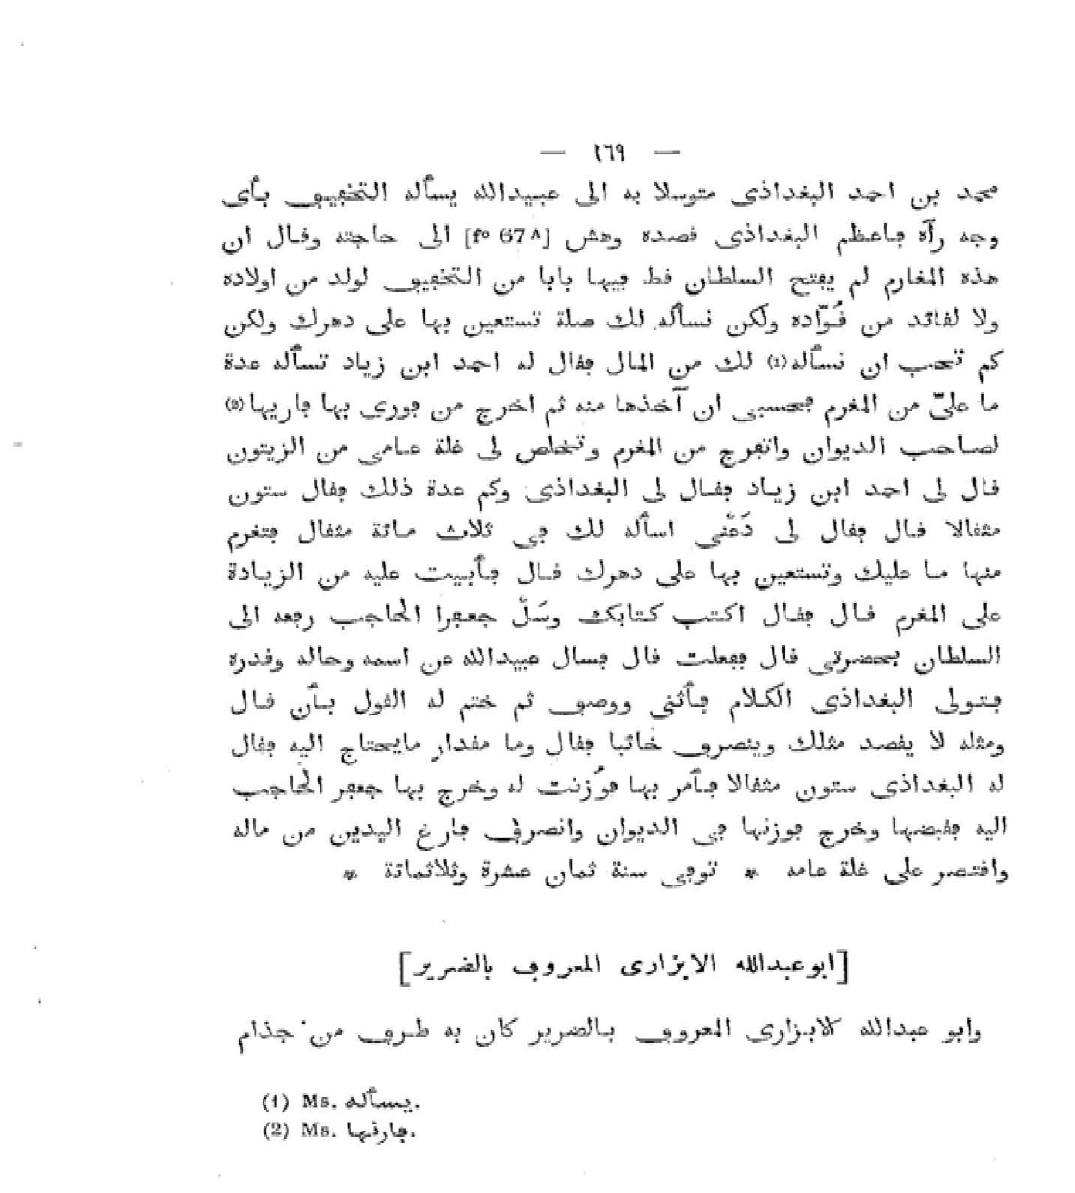 — ١٦٩ —
محمد بن احمد البغداذى متوسلا به الى عبيدالله يسأله التخفيف بأى
وجه رآه فاعظم البغداذى قصده وهش [fº 67 ᴬ] الى حاجته وقال ان
هذه المغارم لم يفتح السلطان قط فيها بابا من التخفيف لولد من اولاده
ولا لقائد من قُوّاده ولكن نسأله لك صلة تستعين بها على دهرك ولكن
كم تحب ان نسأله(1) لك من المال فقال له احمد ابن زياد تسأله عدة
ما علىّ من المغرم فحسبى ان آخذها منه ثم اخرج من فورى بها فاريها(2)
لصاحب الديوان واتفرج من المغرم وتخلص لى غلة عامى من الزيتون
قال لى احمد ابن زياد فقال لى البغداذى وكم عدة ذلك فقال ستون
مثقالا قال فقال لى دَعْنى اسأله لك فى ثلاث مائة مثقال فتغرم
منها ما عليك وتستعين بها على دهرك قال فأبيت عليه من الزيادة
على المغرم قال فقال اكتب كتابك وسَلْ جعفرا الحاجب رفعه الى
السلطان بحضرتى قال ففعلت قال فسال عبيدالله عن اسمه وحاله وقدره
فتولى البغداذى الكلام فأثنى ووصف ثم ختم له القول بأن قال
ومثله لا يقصد مثلك وينصرف خائبا فقال وما مقدار مايحتاج اليه فقال
له البغداذى ستون مثقالا فأمر بها فوُزنت له وخرج بها جعفر الحاجب
اليه فقبضها وخرج فوزنها فى الديوان وانصرف فارغ اليدين من ماله
واقتصر على غلة عامه * توفى سنة ثمان عشرة وثلاثمائة *
[ابو عبدالله الابزارى المعروف بالضرير]
وابو عبدالله الابزارى المعروف بالضرير كان به طرف من جذام
(1) Ms. يسأله.
(2) Ms. فارفها.